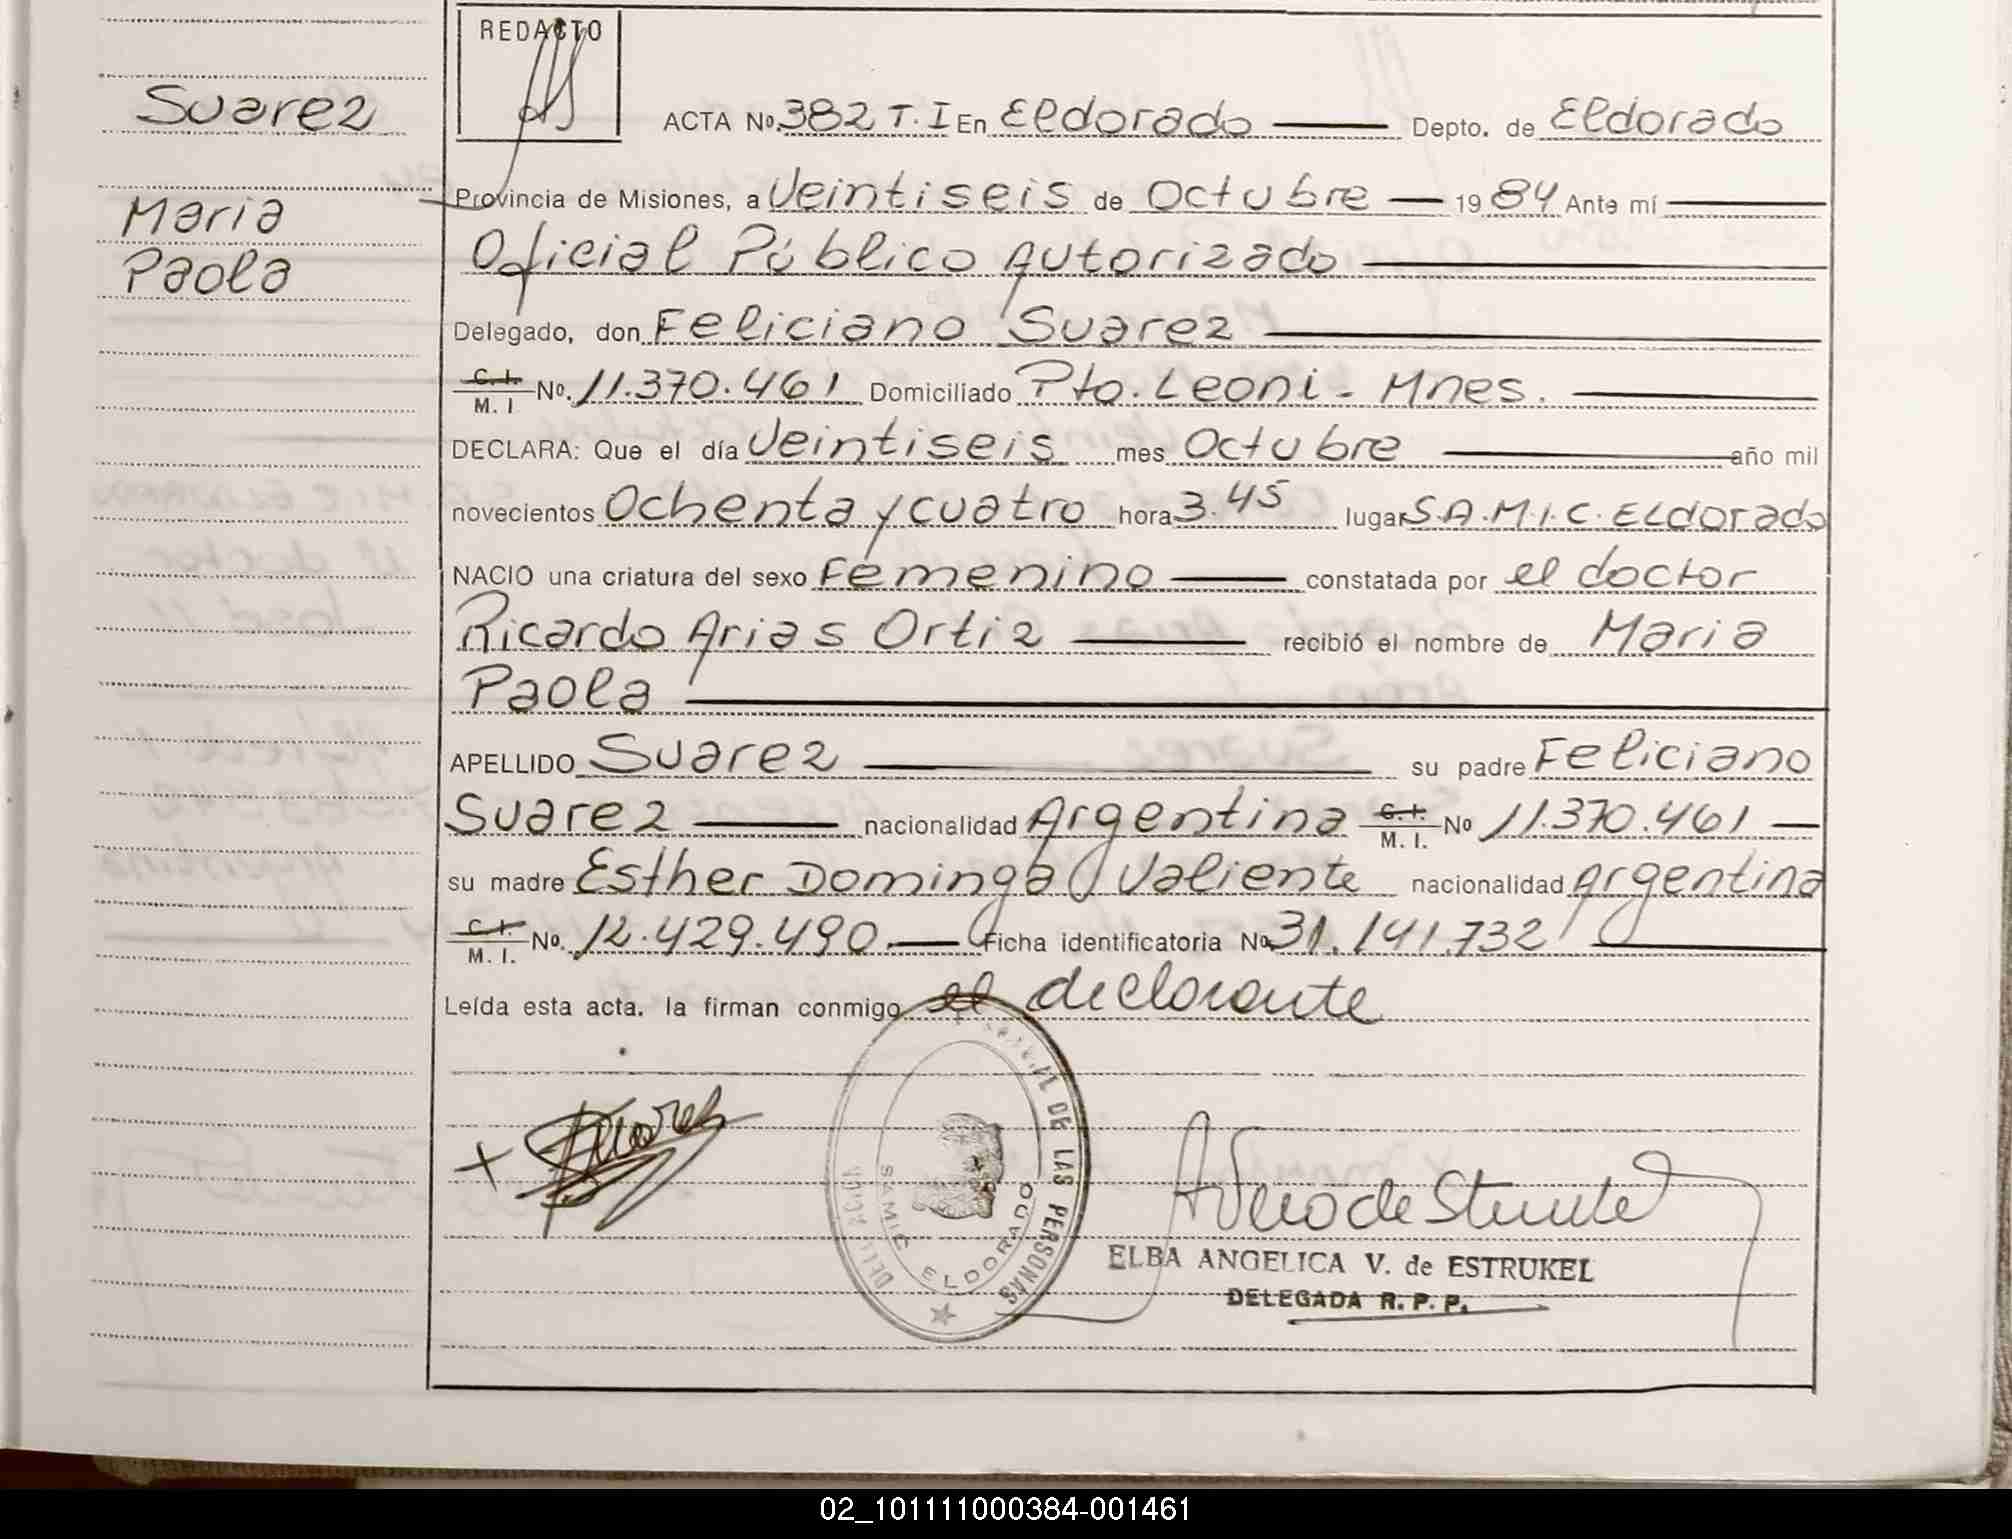 REDACTO
Suarez
Maria
Paola
ACTA No. 382 T. I En Eldorado Depto. de Eldorado
Provincia de Misiones, a Veintiseis de Octubre 1984 Ante mí
Oficial Público Autorizado
Delegado, don Feliciano Suarez
C. I. M. I No. 11.370.461 Domiciliado Pto. Leoni - Mnes.
DECLARA: Que el día Veintiseis mes Octubre año mil
novecientos Ochenta y cuatro hora 3.45 lugar S.A.M.I.C. Eldorado
NACIO una criatura del sexo Femenino constatada por el doctor
Ricardo Arias Ortiz recibió el nombre de Maria
Paola
APELLIDO Suarez su padre Feliciano
Suarez nacionalidad Argentina C. I. M. I. No 11.370.461
su madre Esther Dominga Valiente nacionalidad Argentina
C. I. M. I. No. 12.429.490. Ficha identificatoria No 31.141.732
Leída esta acta. la firman conmigo el declarante
+ Suarez
DE LAS PERSONAS
SAMIC ELDORADO
ELBA ANGELICA V. de ESTRUKEL
DELEGADA R. P. P.
02_101111000384-001461